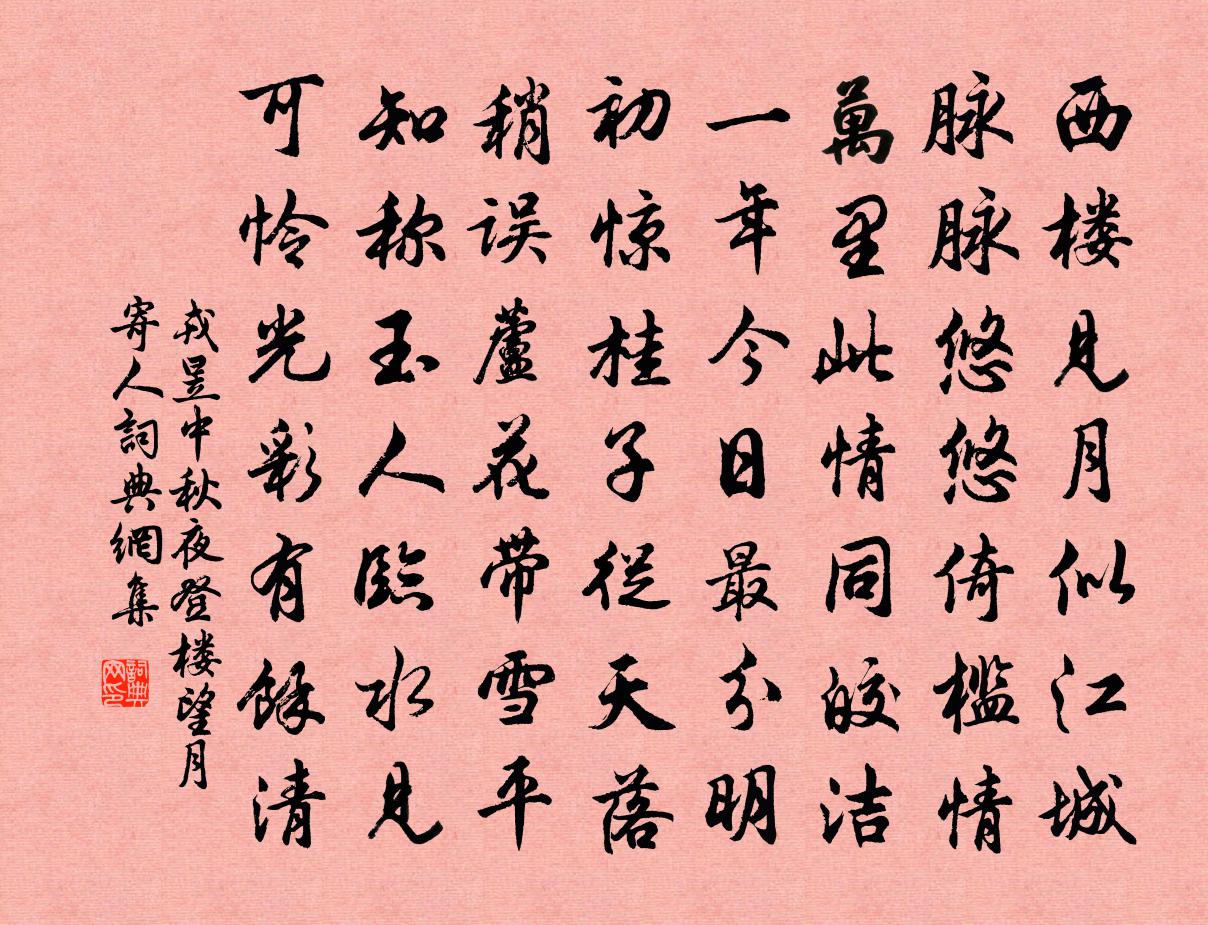 西楼见月似江城
脉脉悠悠倚槛情
萬里此情同皎洁
一年今日最分明
初惊桂子從天落
稍误蘆花带雪平
知称玉人臨水见
可怜光彩有餘清
戎昱中秋夜登楼望月
寄人詞典網集
詞典网印